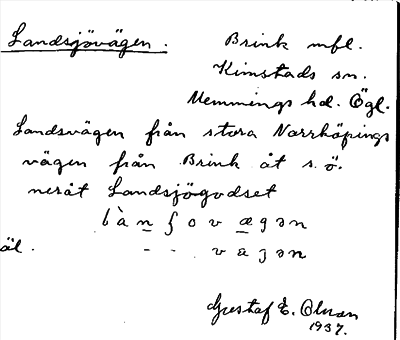 Landsjövägen. Brink mfl.
Kimstads sn.
Memmings hd. Ögl.
Landsvägen från stora Norrköpings
vägen från Brink åt s.ö.
neråt Landsjögodset
làn̲ʃov æ̲gən
äl. - - vaȷən
Gustaf E. Olsson
1937.